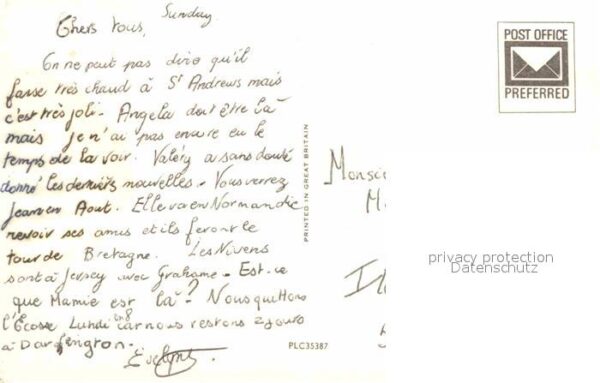 Sunday
Chers tous,
On ne peut pas dire qu'il
fasse très chaud à St Andrews mais
c'est très joli. Angela doit être là
mais je n'ai pas encore eu le
temps de la voir. Valéry a sans doute
donné les derniers nouvelles. Vous verrez
Jean en Aout. Elle va en Normandie
revoir ses amus et ils feront le
tour de Bretagne. Les Nivens
sont à Jersey avec Grahame. Est-ce
que Mamie est là? Nous quittons
l'Ecosse Lundi en 8 car nous restons 2 jours
à Darlington.
Evelyne
POST OFFICE
PREFERRED
PRINTED IN GREAT BRITAIN
Monsie
privacy protection
Datenschutz
PLC35387